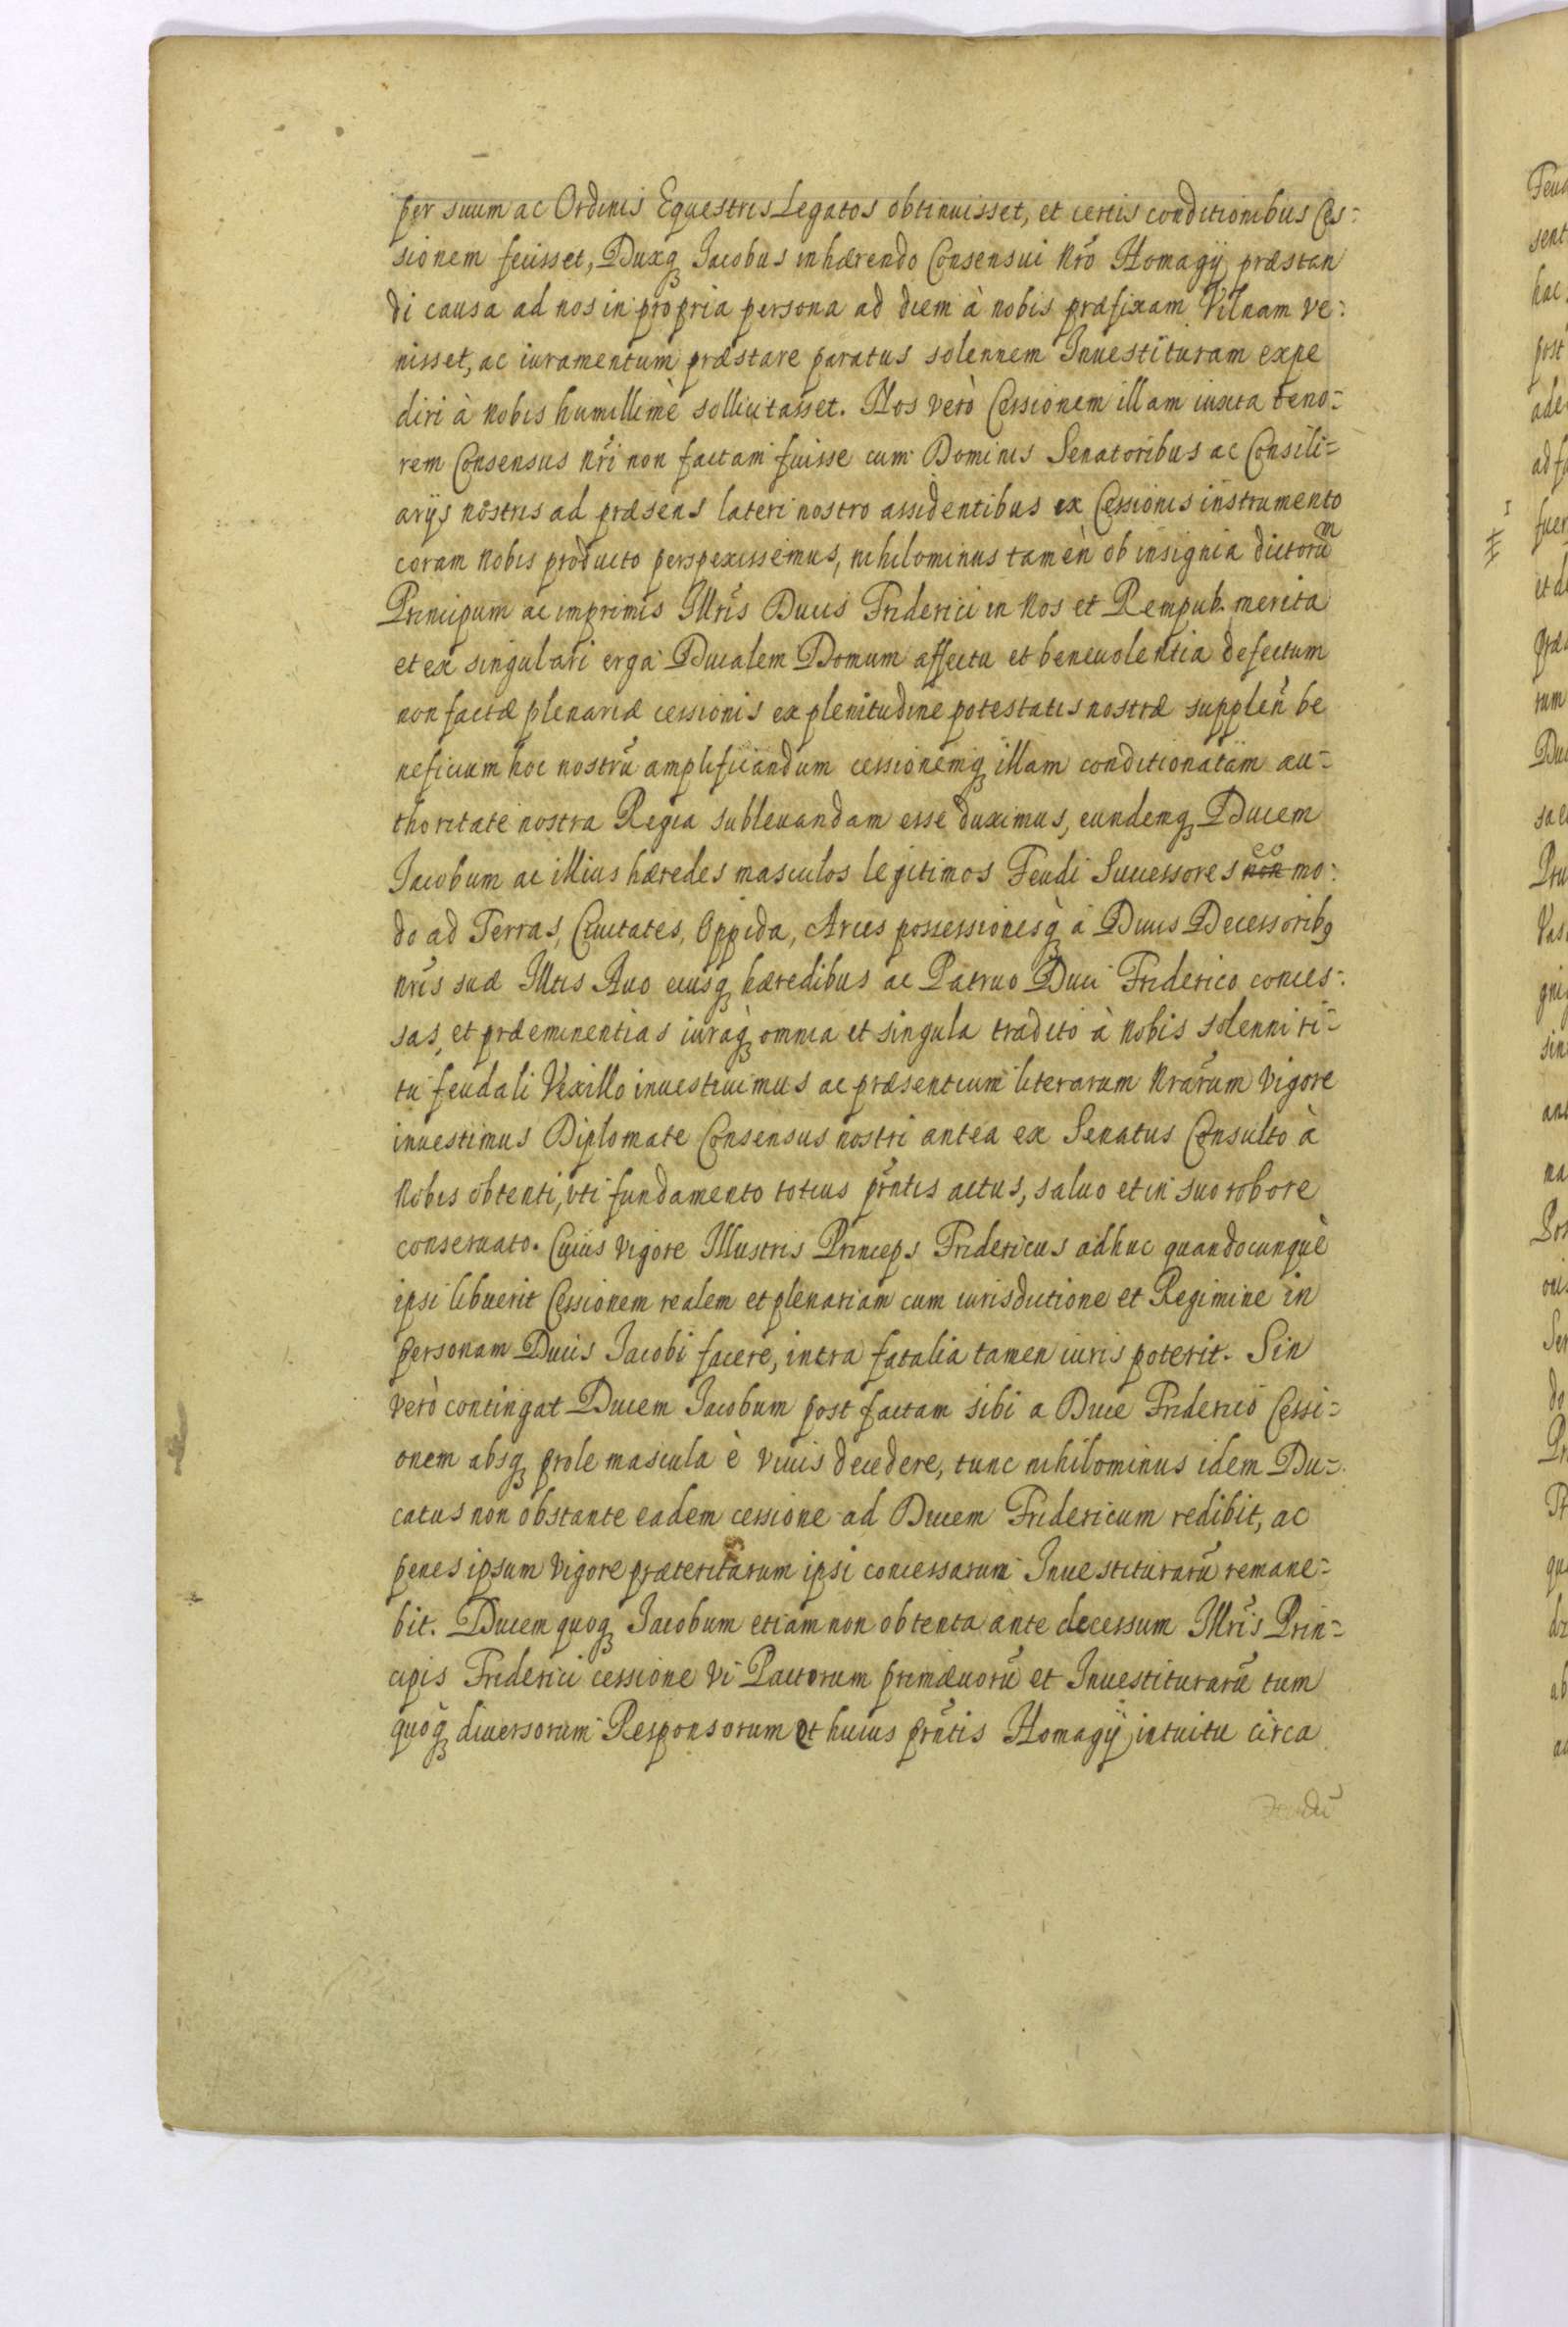 per suum ac Ordinis Equestris Legatos obtinuisset, et certis conditionibus Ces=
sionem fecisset, Duxq3 Iacobus inhærendo Consensui Nrō Homagÿ præstan
di causa ad nos in propria persona ad diem à nobis præfixam Vilnam ve=
nisset, ac iuramentum præstare paratus solennem Inuestituram expe
diri à Nobis humillimè sollicitasset. Nos verò Cessionem illam iuxta teno=
rem Consensus Nrī non factam fuisse cum Dominis Senatoribus ac Consili=
arÿs nostris ad præsens lateri nostro assidentibus ex Cessionis instrumento
coram Nobis producto perspexissemus, nihilominus tamèn ob insignia dictorūm
Principum ac imprimis Illrīs Ducis Friderici in Nos et Rempub. merita
et ex singulari erga Ducalem Domum affectu et beneuolentia defectum
non factæ plenariæ cessionis ex plenitudine potestatis nostræ supplen̄ be
neficium hoc nostrū amplificandum cessionemq3 illam conditionatam au=
thoritate nostra Regia subleuandam esse duximus, eundemq3 Ducem
Iacobum ac illius hæredes masculos legitimos Feudi Successores non eo mo=
do ad Terras, Ciuitates, Oppida, Arces possessionesq3 à Diuis Decessorib9
nrīs suæ Illtis Auo eiusq3 hæredibus ac Patruo Duci Friderico conces=
sas, et præeminentias iuraq3 omnia et singula tradito à Nobis solenni ri=
tu feudali Vexillo inuestiuimus ac præsentium literarum Nrārum Vigore
inuestimus Diplomate Consensus nostri antea ex Senatus Consulto à
Nobis obtenti, vti fundamento totius prn̄tis actus, saluo et in suo robore
conseruato. Cuius vigore Illustris Princeps Fridericus adhuc quandocunquè
ipsi libuerit Cessionem realem et plenariam cum iurisdictione et Regimine in
personam Ducis Iacobi facere, intra fatalia tamen iuris poterit. Sin
verò contingat Ducem Iacobum post factam sibi a Duce Friderico Cessi=
onem absq3 prole mascula è viuis decedere, tunc nihilominus idem Du=
catus non obstante eadem cessione ad Ducem Fridericum redibit, ac
penes ipsum Vigore præteritarum ipsi concessarum Inuestiturarū remane=
bit. Ducem quoq3 Iacobum etiam non obtenta ante decessum Illrīs Prin=
cipis Friderici cessione vi Pactorum primæuorū et Inuestiturarū tum
quoq3 diuersorum Responsorum et huius prn̄tis Homagÿ intuitu circa
Feudū